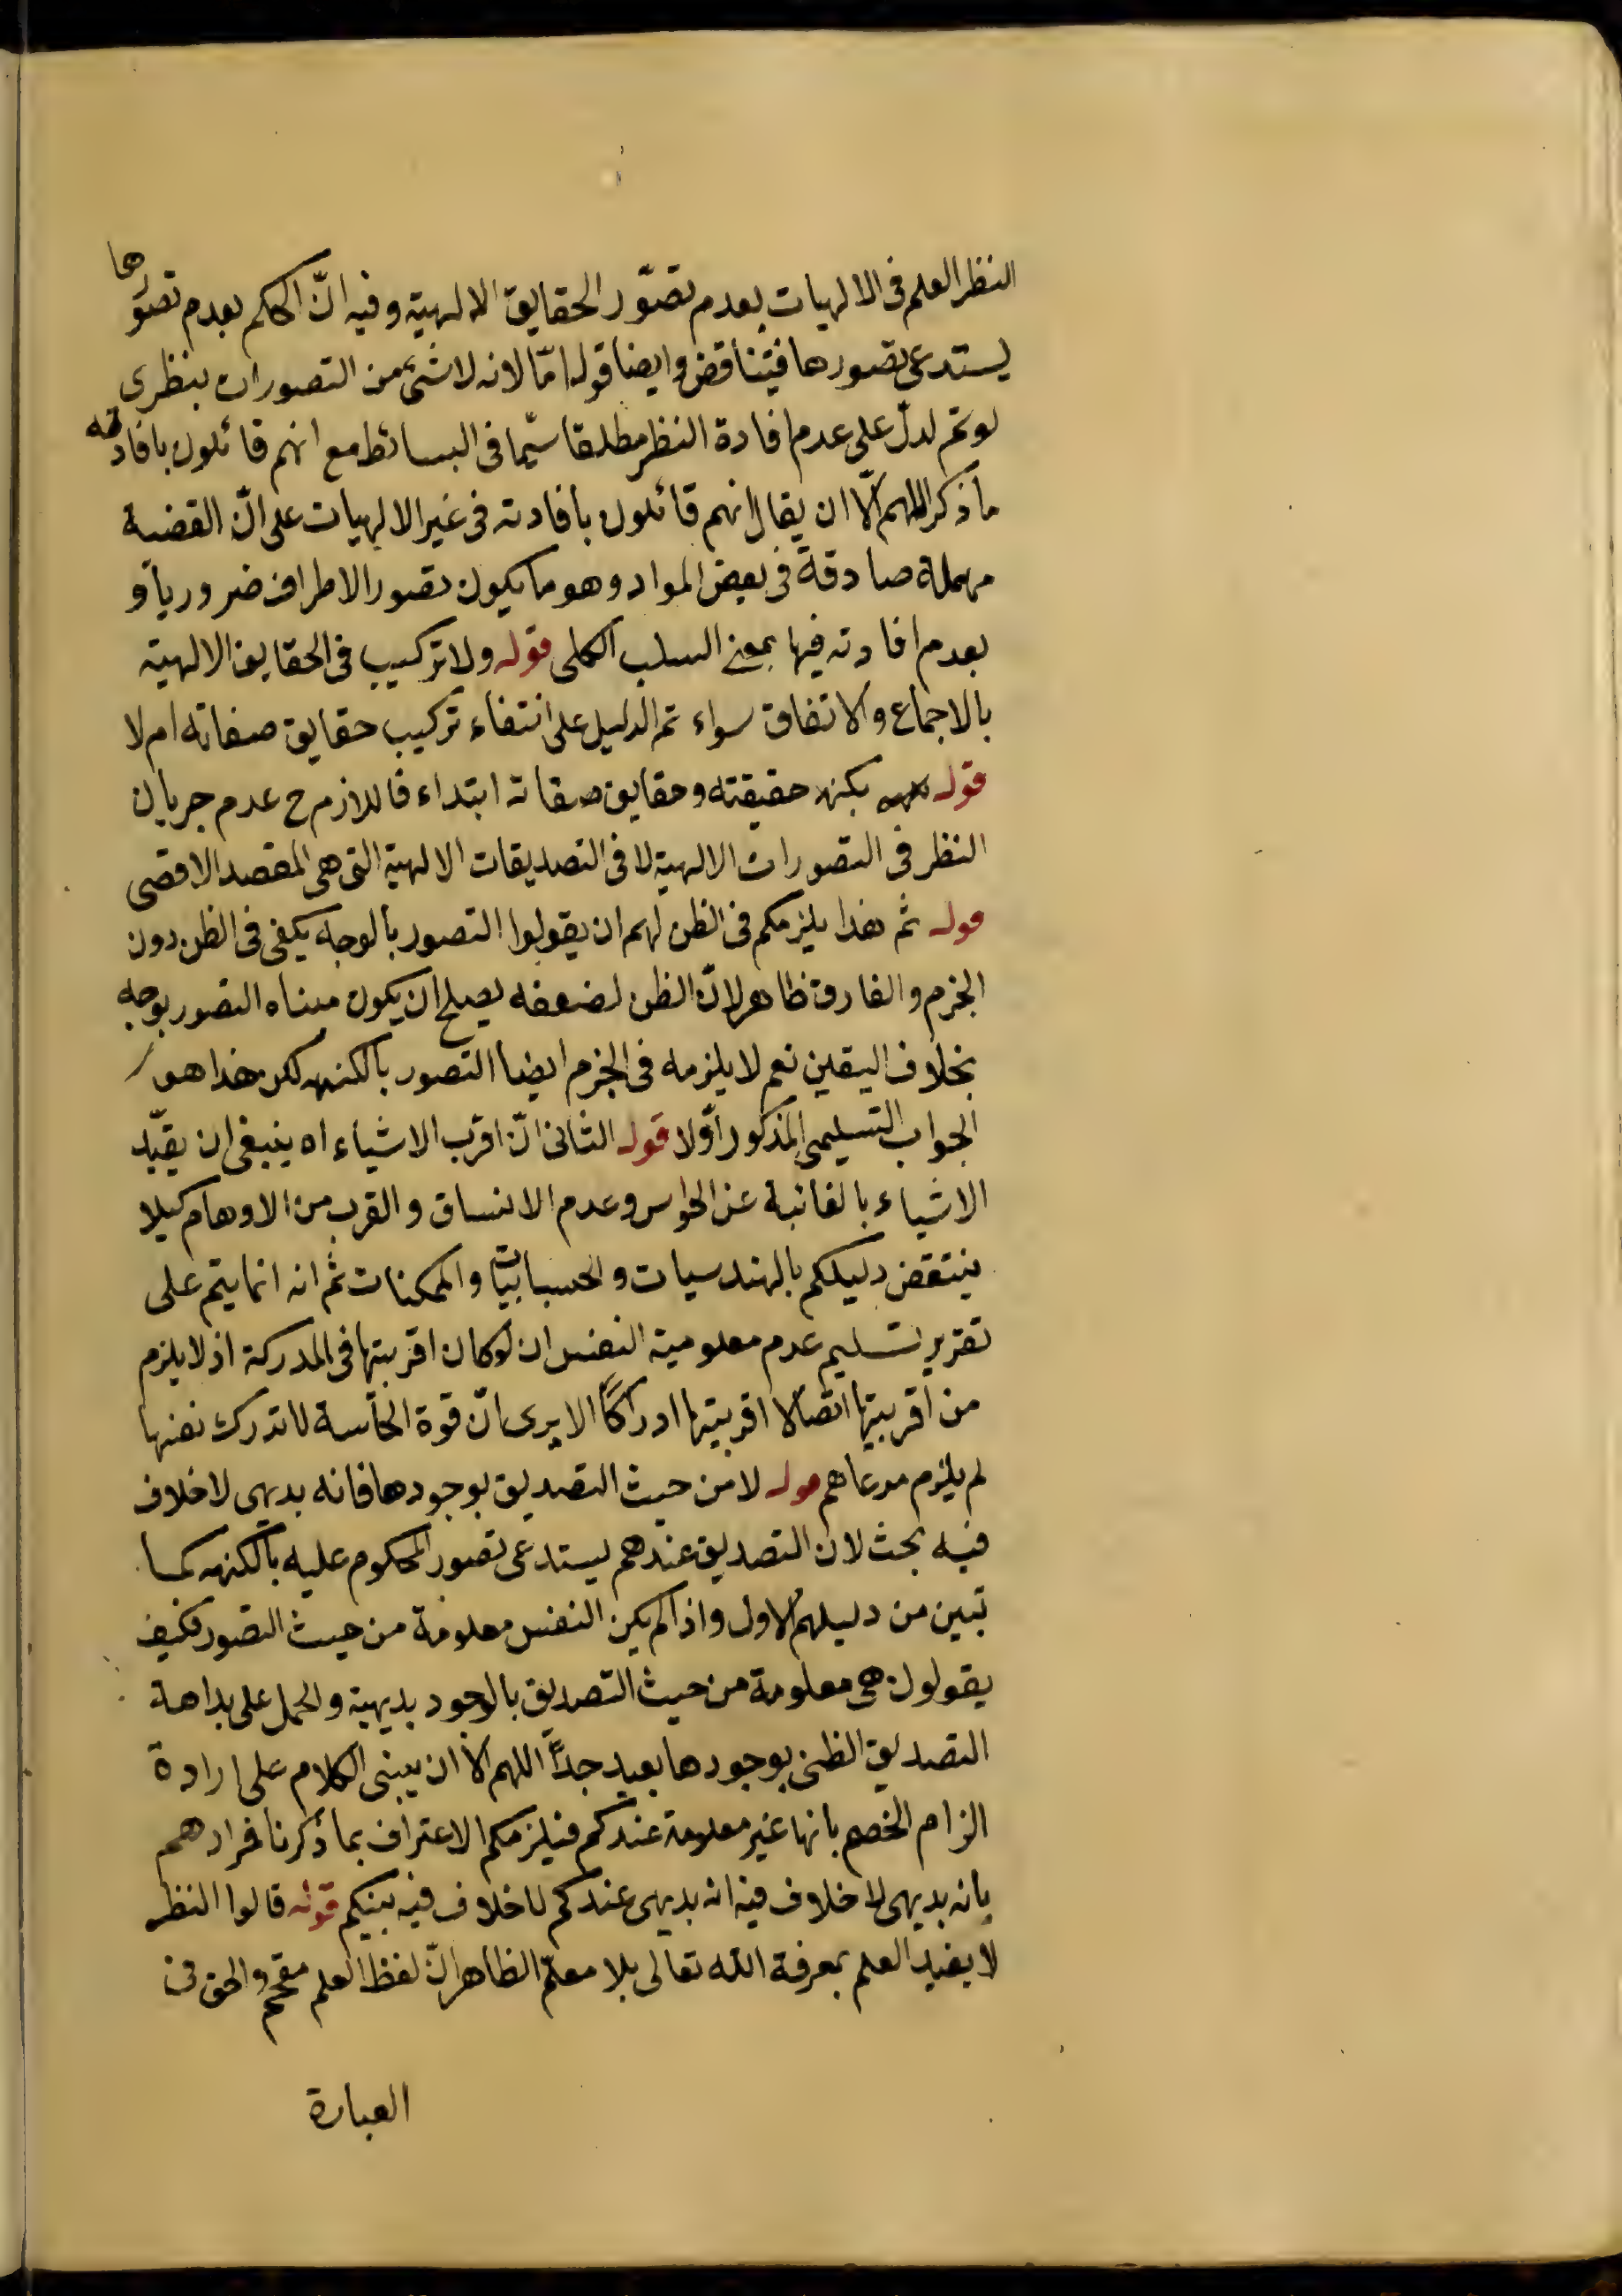 النظر العلم فى الالهيات بعدم تصوّر الحقايق الالهية وفيه انّ الحكم بعدم تصورها
يستدعى تصورها فيتناقض وايضا قوله امّا لانه لا شئ من التصورات بنظرى
لو تم لدلّ على عدم افادة النظر مطلقا سيّما فى البسائط مع انهم قائلون بافادته
ما ذكر اللهم الّا ان يقال انهم قائلون بافادته فى غير الالهيات على انّ القضية
مهملة صادقة فى بعض المواد وهو ما يكون تصور الاطراف ضروريا و
بعدم افادته فيها بمعنى السلب الكلى قوله ولا تركيب فى الحقايق الالهية
بالاجماع والاتفاق سواء تم الدليل على انتفاء تركيب حقايق صفاته ام لا
قوله بكنه حقيقته وحقايق صفاته ابتداء فاللازم ح عدم جريان
النظر فى التصورات الالهية لا فى التصديقات الالهية التى هى المقصد الاقصى
قوله ثم هذا يلزمكم فى الظن لهم ان يقولوا التصور بالوجه يكفى فى الظن دون
الجزم والفارق ظاهر لانّ الظن لضعفه يصلح ان يكون مبناه التصور بوجه
بخلاف اليقين نعم لا يلزمه فى الجزم ايضا التصور بالكنه لكن هذا هو
الجواب التسليمى المذكور اوّلا قوله الثانى انّ اقرب الاشياء اه ينبغى ان يقيّد
الاشياء بالغائبة عن الحواس وعدم الانساق والقرب من الاوهام كيلا
ينتقض دليلكم بالهندسيات والحسابيات والممكنات ثم انه انما يتم على
تقرير تسليم عدم معلومية النفس ان لو كان اقربيتها فى المدركة اذ لا يلزم
من اقربيتها اتصالا اقربيتها ادراكًا الا يرى انّ قوة الحاسة لا تدرك نفسها
لم يلزم مدعاهم قوله لا من حيث التصديق بوجودها فانه بديهى لا خلاف
فيه بحث لان التصديق عندهم يستدعى تصور المحكوم عليه بالكنه كما
تبين من دليلهم الاول واذا لم يكن النفس معلومة من حيث التصور فكيف
يقولون هى معلومة من حيث التصديق بالوجود بديهية والحمل على بداهة
التصديق الظنى بوجودها بعيد جدًّا اللهم الا ان يبنى الكلام على ارادة
الزام الخصم بانها غير معلومة عندكم فيلزمكم الاعتراف بما ذكرنا فمرادهم
بانه بديهى لا خلاف فيه انه بديهى عندكم لا خلاف فيه بينكم قوله قالوا النظر
لا يفيد العلم بمعرفة الله تعالى بلا معلّم الظاهر انّ لفظ العلم مقحم والحق فى
العبارة